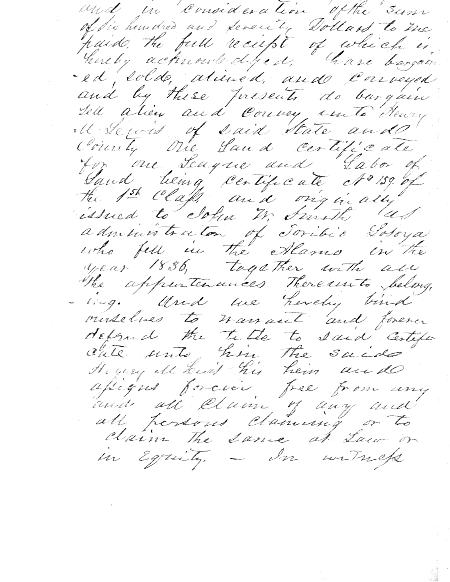 and in consideration of the sum
of six hundred and seventy Dollars to me
paid, the full reciept of which is
hereby acknowledged, have bargain
-ed, sold, aliened, and conveyed
and by these presents do bargain
sell alien and convey unto Henry
M Lewis of said State and
County One Land certificate
for one League and Labor of
Land being certificate No 139 of
the 1st Class and originally
issued to John W. Smith as
administrator of Toribio Losoya
who fell in the Alamo in the
year 1836, together with all
the appurtenances thereunto belong,
-ing. And we hereby bind
ourselves to warrant and forever
defend the title to said Certifi
cate unto him the said
Henry M Lewis his heirs and
assigns forever free from any
and all claim of any and
all persons claiming or to
claim the same at Law or
in Equity. — In witness